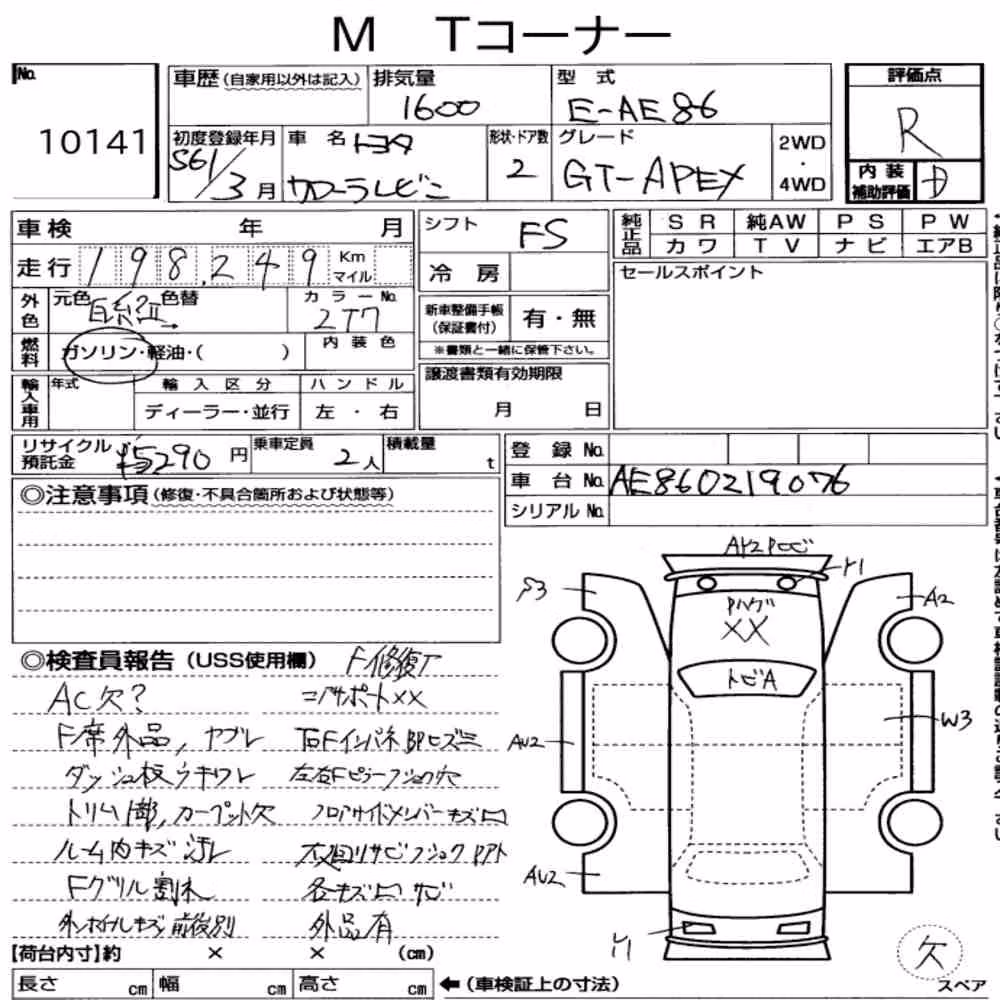 M Tコーナー
No. 10141
車歴(自家用以外は記入)
排気量 1600
型式 E-AE86
評価点 R
初度登録年月 S61/3月
車名 トヨタ カローラレビン
形状・ドア数 2
グレード GT-APEX
2WD・4WD
内装補助評価 D
車検 年 月
シフト FS
純正品 SR 純AW PS PW
カワ TV ナビ エアB
走行 198,249 Km マイル
冷房
セールスポイント
外色 元色 色替
カラーNo. 2T7
新車整備手帳(保証書付) 有・無
※書類と一緒に保管下さい。
燃料 ガソリン・軽油・( )
内装色
輸入車用 年式 輸入区分 ハンドル
ディーラー・並行 左・右
譲渡書類有効期限
月 日
リサイクル預託金 ¥5290円
乗車定員 2人
積載量 t
登録No.
車台No. AE860219076
シリアルNo.
◎注意事項(修復・不具合箇所および状態等)
◎検査員報告(USS使用欄) F修復
AC欠? コアサポートXX
F席外品,ヤブレ 右Fインパネ部ヒズミ
ダッシュ板ウキワレ 左右Fピラーフショク穴
トリム1部,カーペット欠 フロアサイドメンバーキズ凹
ルーム内キズ汚レ 下回リサビフショクPアト
Fグリル割れ 各キズ凹サビ
外ホイルキズ前後別 外品有
AY2Pトビ
Y1
S3
A2
Pハゲ
XX
トビA
W3
AU2
AU2
Y1
欠
スペア
【荷台内寸】約 × × (cm)
長さ cm 幅 cm 高さ cm
←(車検証上の寸法)